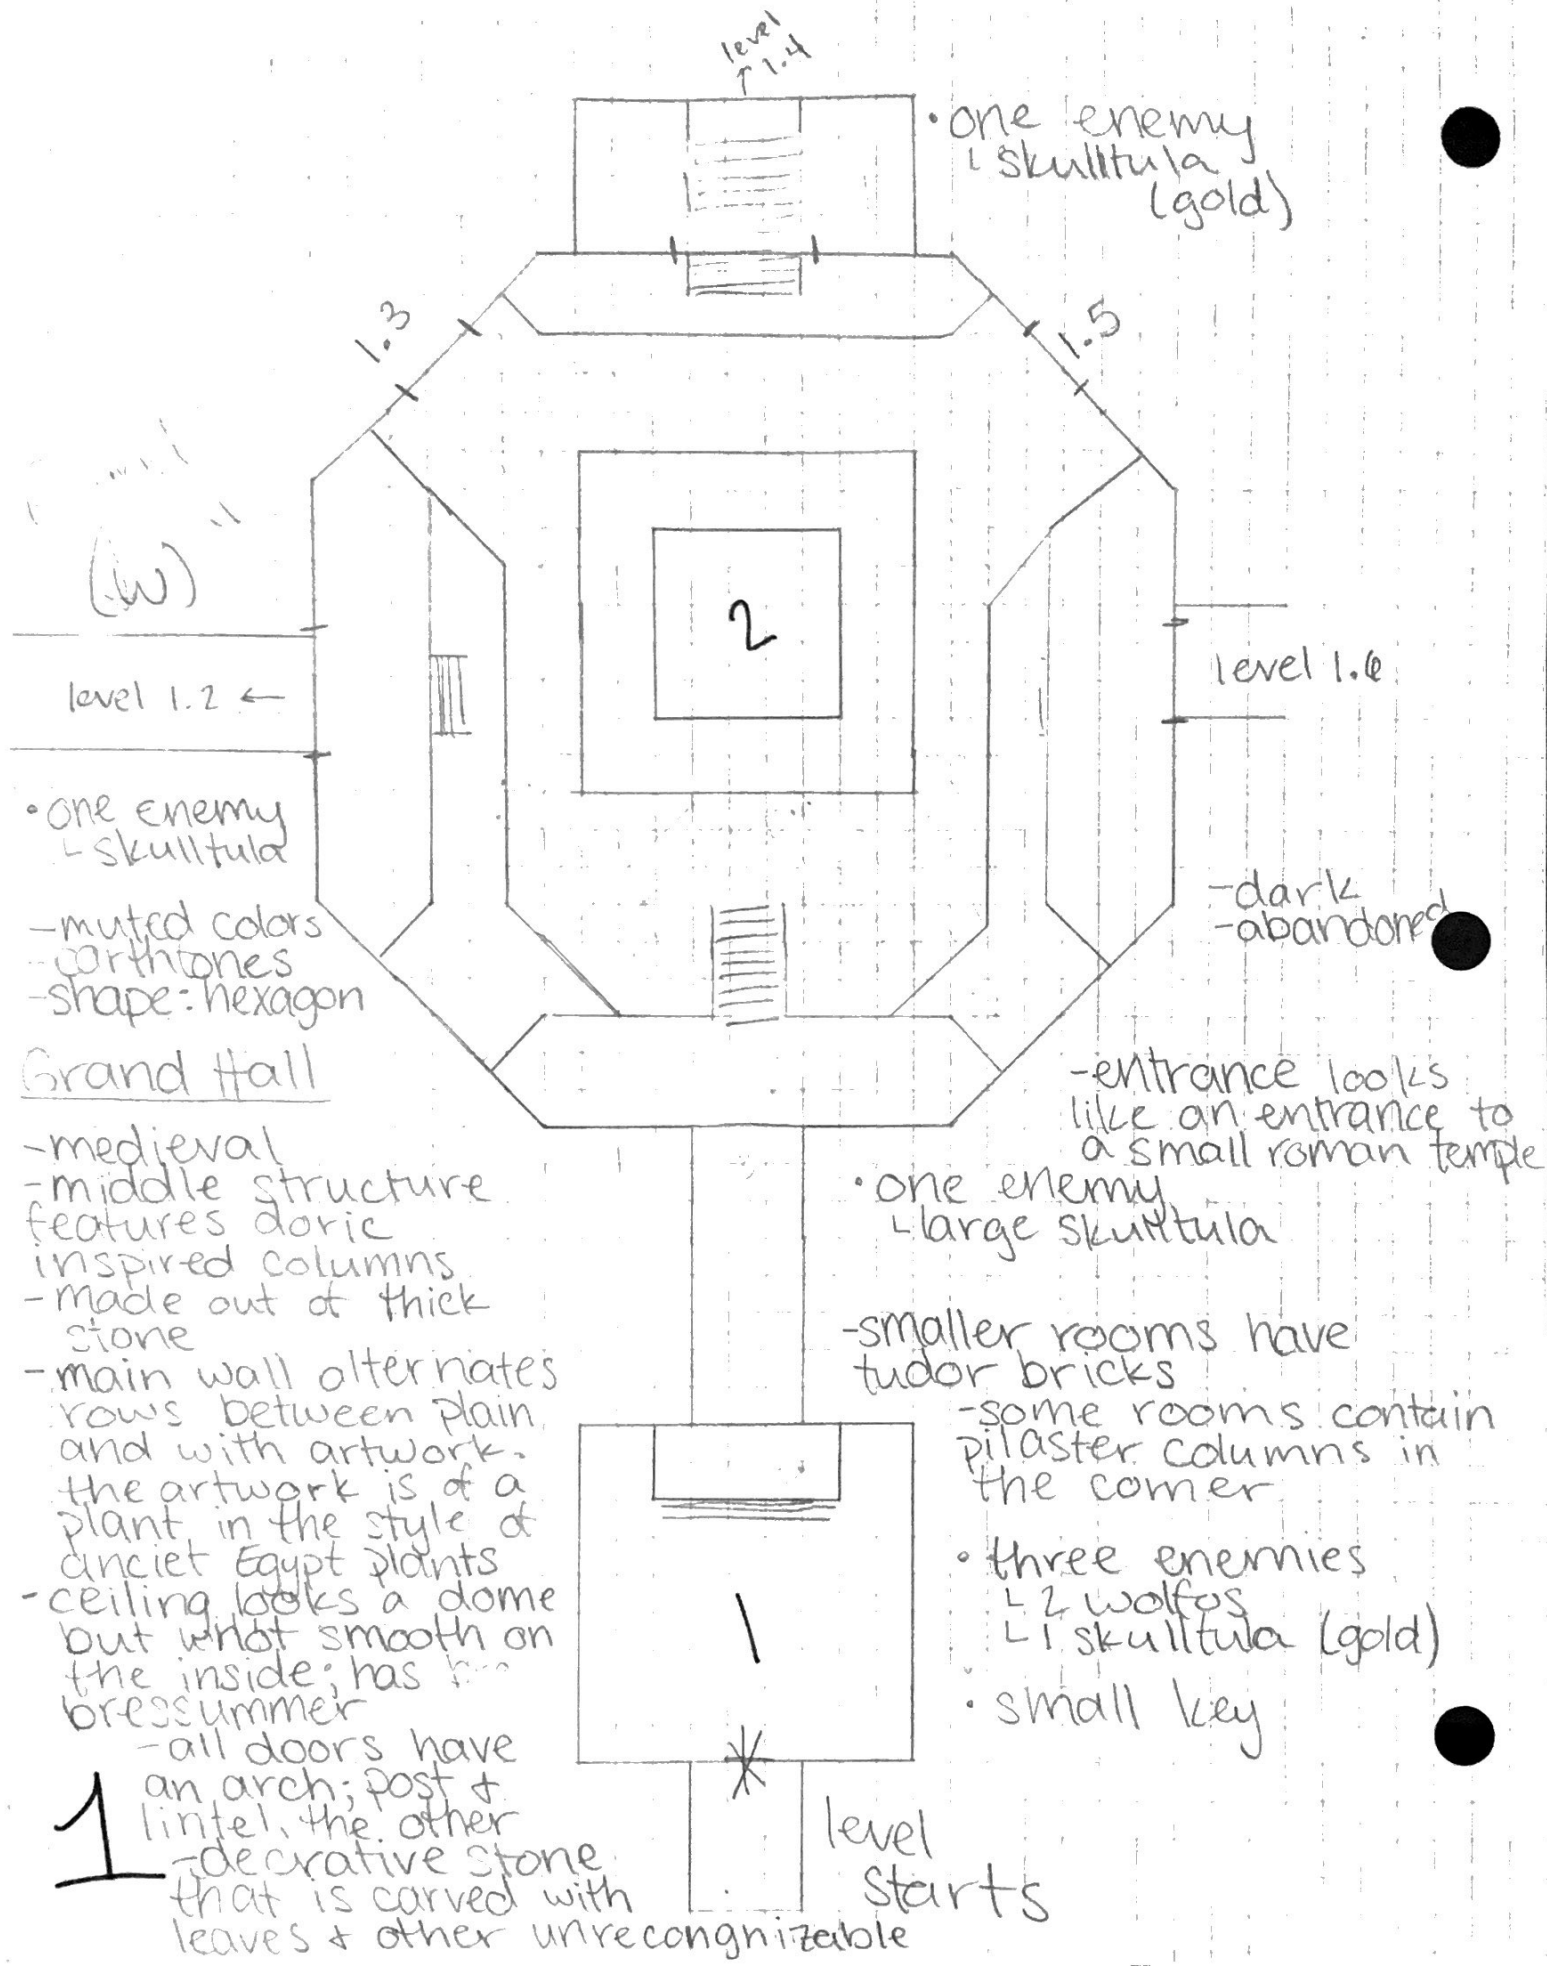 level
↑ 1.4
• one enemy
└ skulltula
(gold)
1.3
1.5
(W)
2
level 1.2 ←
level 1.6
• one enemy
└ skulltula
- dark
- abandoned
- muted colors
- earthtones
- shape: hexagon
Grand Hall
- entrance looks
like an entrance to
a small roman temple
- medieval
- middle structure
features doric
inspired columns
- made out of thick
stone
- main wall alternates
rows between plain
and with artwork.
the artwork is of a
plant in the style of
anciet Egypt plants
- ceiling looks a dome
but not smooth on
the inside; has
bressummer
- all doors have
an arch; post &
lintel, the other
- decrative stone
that is carved with
leaves & other unrecongnizable
• one enemy
└ large skulltula
- smaller rooms have
tudor bricks
- some rooms contain
pilaster columns in
the corner
• three enemies
└ 2 wolfos
└ 1 skulltula (gold)
• small key
1
level
starts
1